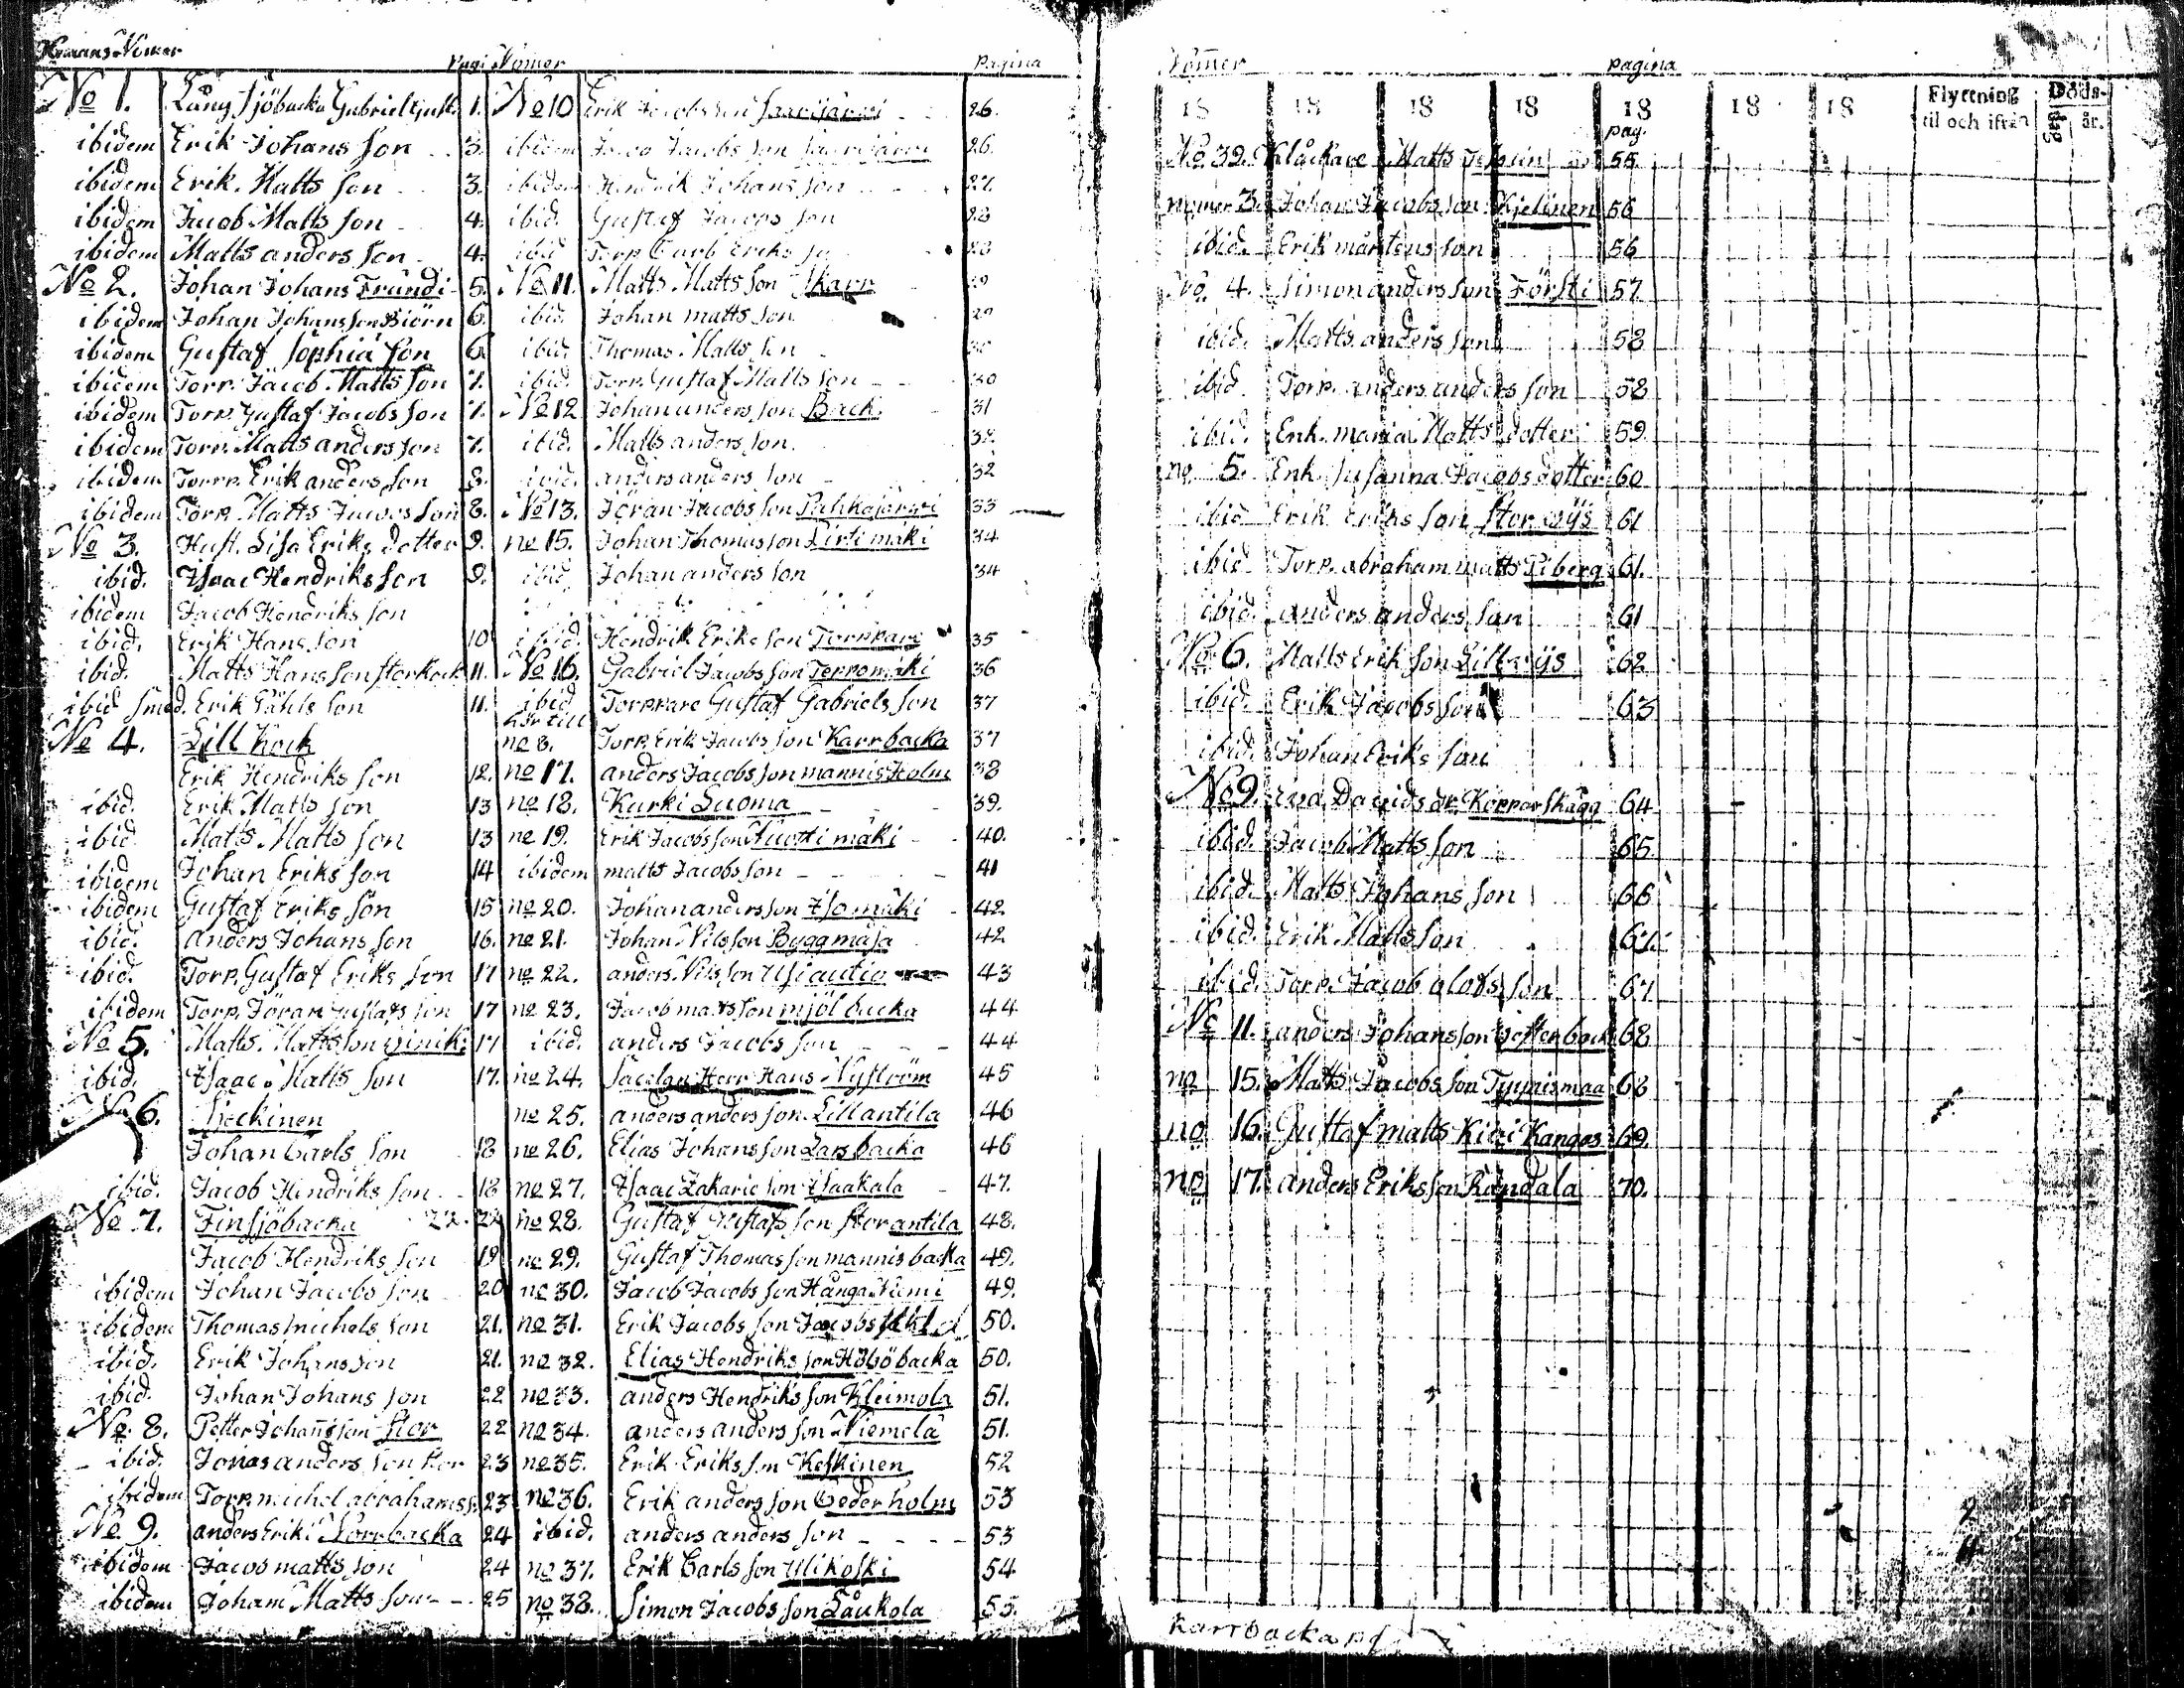 Hemans Nomer Pagi
No 1. Lång Sjöbacka Gabriel Gust. 1.
ibidem Erik Johans son 3.
ibidem Erik Matts son 3.
ibidem Jacob Matts son 4.
ibidem Matts anders son 4.
No 2. Johan Johans Frundi 5.
ibidem Johan Johansson Biörn 6.
ibidem Gustaf Sophia son 6
ibidem Torp. Jacob Matts son 7.
ibidem Torp. Gustaf Jacobs son 7.
ibidem Torp. Matts anders son 7.
ibidem Torp. Erik anders son 8.
ibidem Torp. Matts Jacobs son 8.
No 3. Hust. Lisa Eriks dotter 9.
ibid. Isaac Hendriks son 9.
ibidem Jacob Hendriks son
ibid. Erik Hans son 10
ibid. Matts Hans son storkock 11.
ibid smed. Erik Påhls son 11.
No 4. Lill Kock
Erik Hendriks son 12.
ibid. Erik Matts son 13
ibid Matts Matts son 13
ibidem Johan Eriks son 14
ibidem Gustaf Eriks son 15
ibid. anders Johans son 16.
ibid. Torp. Gustaf Eriks son 17
ibidem Torp. Jöran Gustafs son 17
No 5. Matts Matts son 17
ibid. Isaac Matts son 17.
No 6.
Johan Carls son 18
ibid. Jacob Hendriks son 18
No 7. Finsjöbacka 22. 22
Jacob Hendriks son 19
ibidem Johan Jacobs son 20
ibidem Thomas michels son 21.
ibid. Erik Johans son 21.
ibid. Johan Johans son 22
No 8. Petter Johans son stor 22
ibid. Jonas anders son 23
ibidem Torp. michel abrahams s. 23
No 9. anders Eriks Norrbacka 24
ibidem Jacob matts son 24
ibidem Joham Matts son 25
Nomer Pagina
No 10 Erik Jacobs son Saarijärwi 26.
ibidem Jacob Jacobs son Saarijärwi 26.
ibidem Hendrik Johans son 27
ibid. Gustaf Jacobs son 28
ibid Torp. Carb Eriks so 28
No 11. Matts Matts son Skarp 29
ibid. Johan matts son 29
ibid. Thomas Matts son 30
ibid. Torp. Gustaf Matts son 30
No 12 Johan anders son Back 31
ibid. Matts anders son 32.
ibid. anders anders son 32
No 13. Jöran Jacobs son Pahkajärwi 33
no 15. Johan Thomas son Pirtimäki 34
ibid. Johan anders son 34
ibid. Hendrik Eriks son Torppare 35
No 16. Gabriel Jacobs son Terromäki 36
ibid Torppare Gustaf Gabriels son 37
hör till
no 8. Torp. Erik Jacobs son Karrbacka 37
no 17. anders Jacobs son mannis Holm 38
no 18. Kurki Luoma 39.
no 19. Erik Jacobs son Nuottimäki 40.
ibidem matts Jacobs son 41
no 20. Johan anders son Isomäki 42
no 21. Johan Nils son Byggmäsa 42
no 22. anders Nils son Usiautio 43
no 23. Jacob matts son mjölbacka 44
ibid. anders Jacobs son 44
no 24. Sacelan Herr Hans Nyström 45
no 25. anders anders son Lillantila 46
no 26. Elias Johans son Larsbacka 46
no 27. Isaac Zakarie son Isaakala 47.
no 28. Gustaf Gustafs son storantila 48.
no 29. Gustaf Thomas son mannisbacka 49.
no 30. Jacob Jacobs son Hanganiemi 49.
no 31. Erik Jacobs son 50.
no 32. Elias Hendriks son Högbacka 50.
no 33. anders Hendriks son Kleimola 51.
no 34. anders anders son Niemelä 51.
no 35. Erik Eriks son Keskinen 52
no 36. Erik anders son Cederholm 53
ibid. anders anders son 53
no 37. Erik Carls son Ulikoski 54
no 38. Simon Jacobs son Laukola 55.
Nomer pagina
18 18 18 18 18 18 18 Flyttning til och ifrån Döds- dag år.
pag.
No 39. Klåckare Matts 55
nomer 3. Johan Jacobs son Kjelinen 56
ibid. Erik mårtens son 56
No. 4. Simon anders son Försti 57
ibid. Matts anders son 58
ibid Torp. anders anders son 58
ibid. Enk. maria Matts dotter 59
no 5. Enk. Susanna Jacobs dotter 60
ibid Erik Eriks son storwijs 61
ibid. Torp. abraham matts Piberg 61.
ibid. anders anders son 61
No 6. Matts Erik son Lillwijs 62
ibid. Erik Jacobs son 63
ibid. Johan Eriks son
No 9. Eva Davids dr Kopparskägg 64
ibid. Jacob Matts son 65
ibid. Matts Johans son 66
ibid. Erik Matts son 67
ibid. Torp. Jacob olofs son 67
No 11. anders Johans son 68
no 15. Matts Jacobs son Tyynismaa 68
no 16. Gustaf matts Kivi Kangas 69.
no 17. anders Eriks son Randala 70.
Karrbacka pg